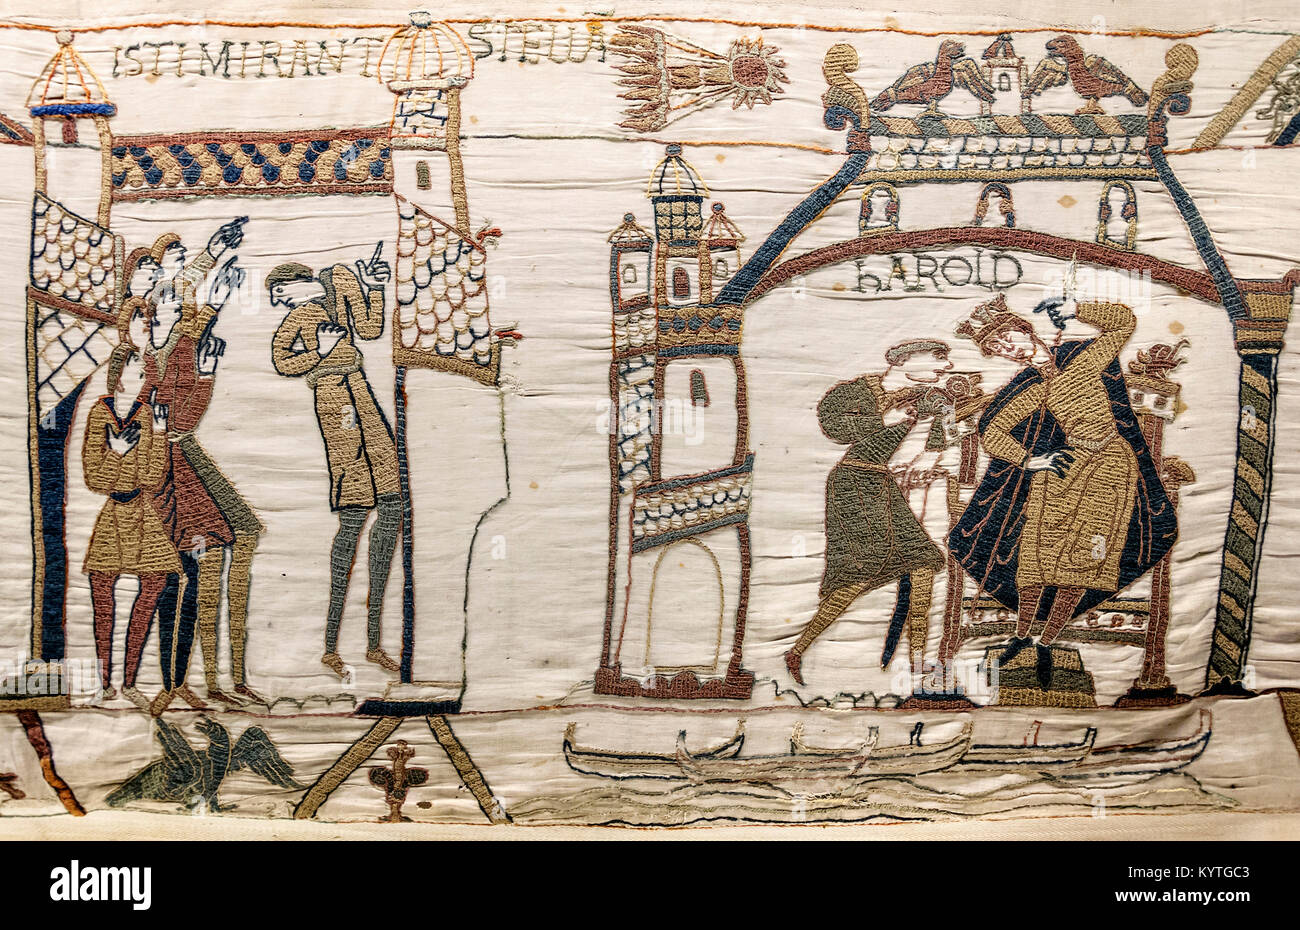 ISTI MIRANT STELLA
hAROLD
alamy
Image ID: KYTGC3
www.alamy.com